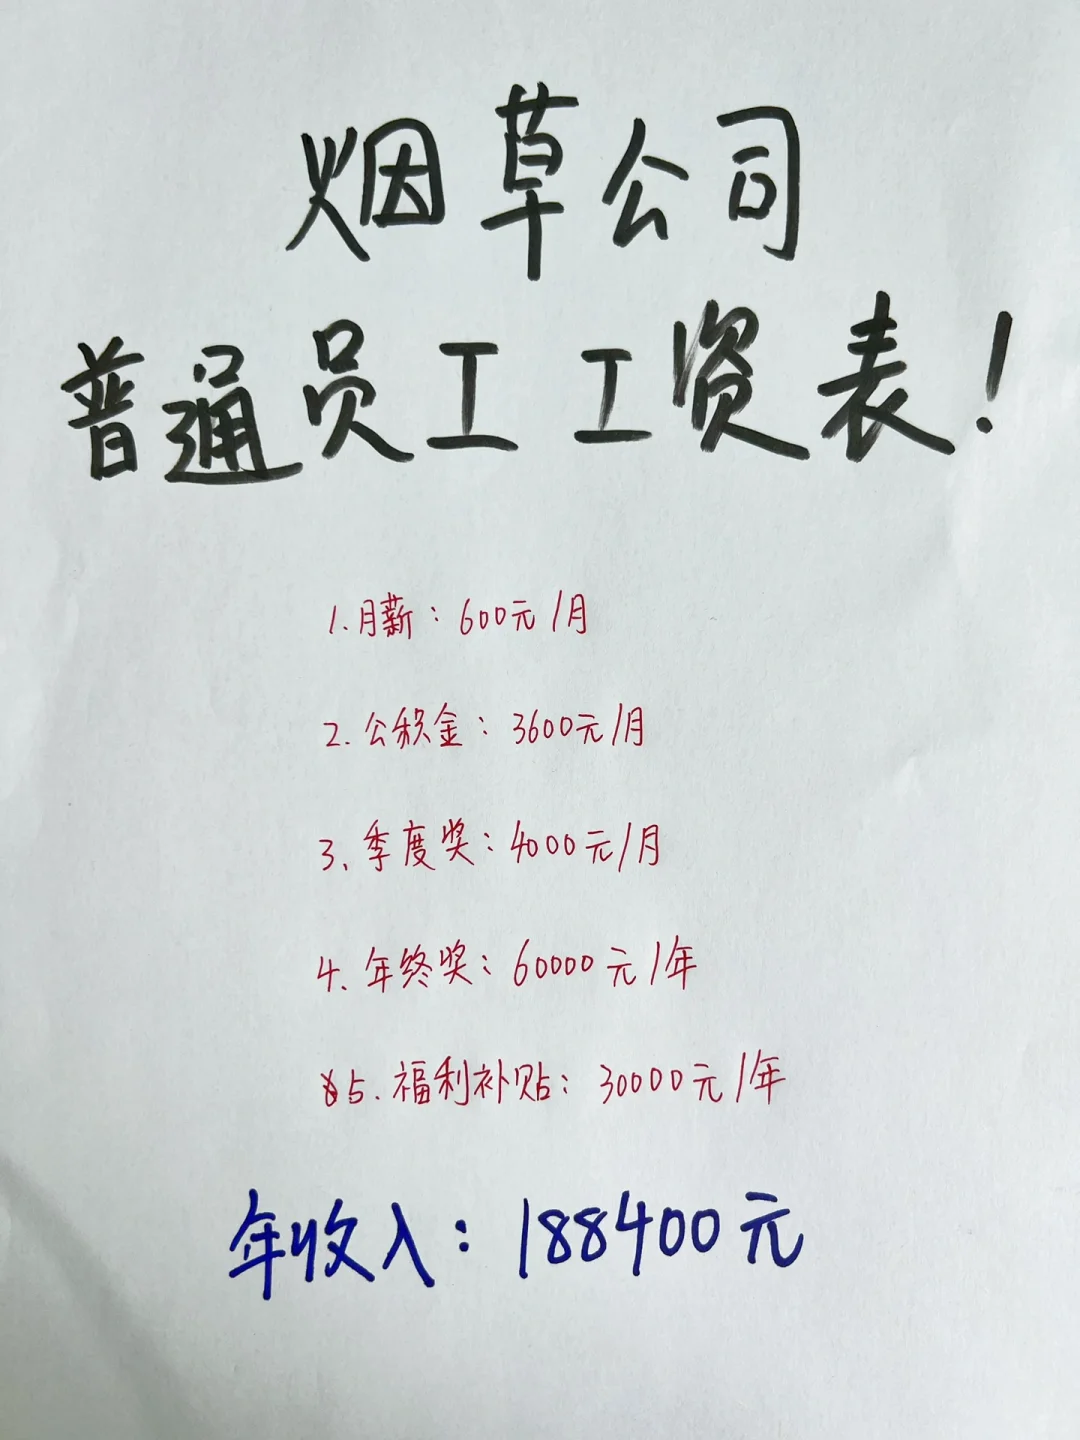 烟草公司
普通员工工资表!
1.月薪:600元/月
2.公积金:3600元/月
3、季度奖:4000元/月
4、年终奖:60000元/年
5.福利补贴:30000元/年
年收入:188400元